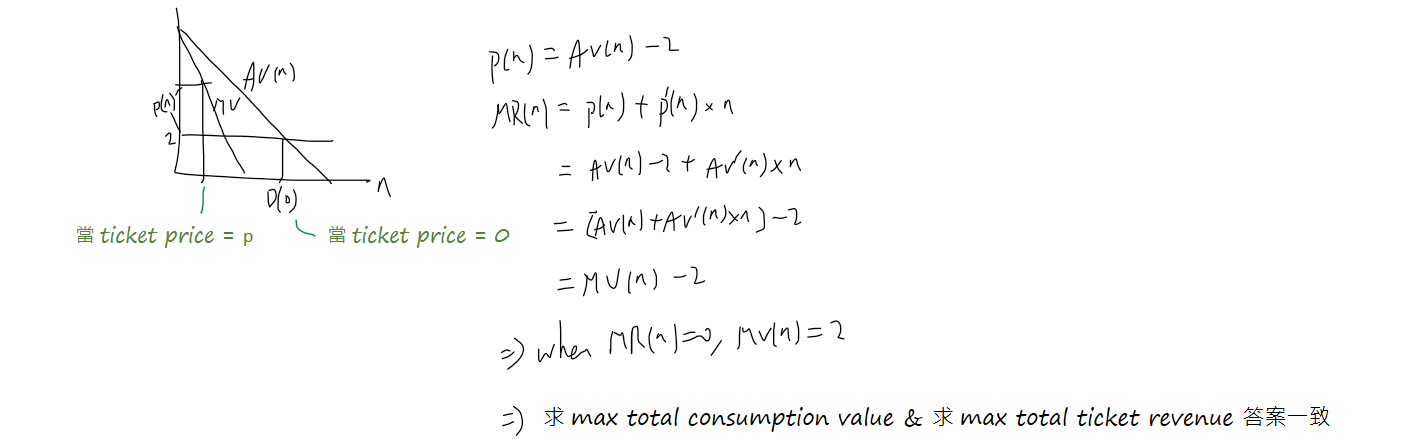 AV(n)
P(n)
MV
2
D(0)
n
當 ticket price = p
當 ticket price = 0
P(n) = AV(n) - 2
MR(n) = P(n) + P'(n) × n
= AV(n) - 2 + AV'(n) × n
= [AV(n) + AV'(n) × n] - 2
= MV(n) - 2
=) when MR(n)=0, MV(n) = 2
=) 求 max total consumption value & 求 max total ticket revenue 答案一致